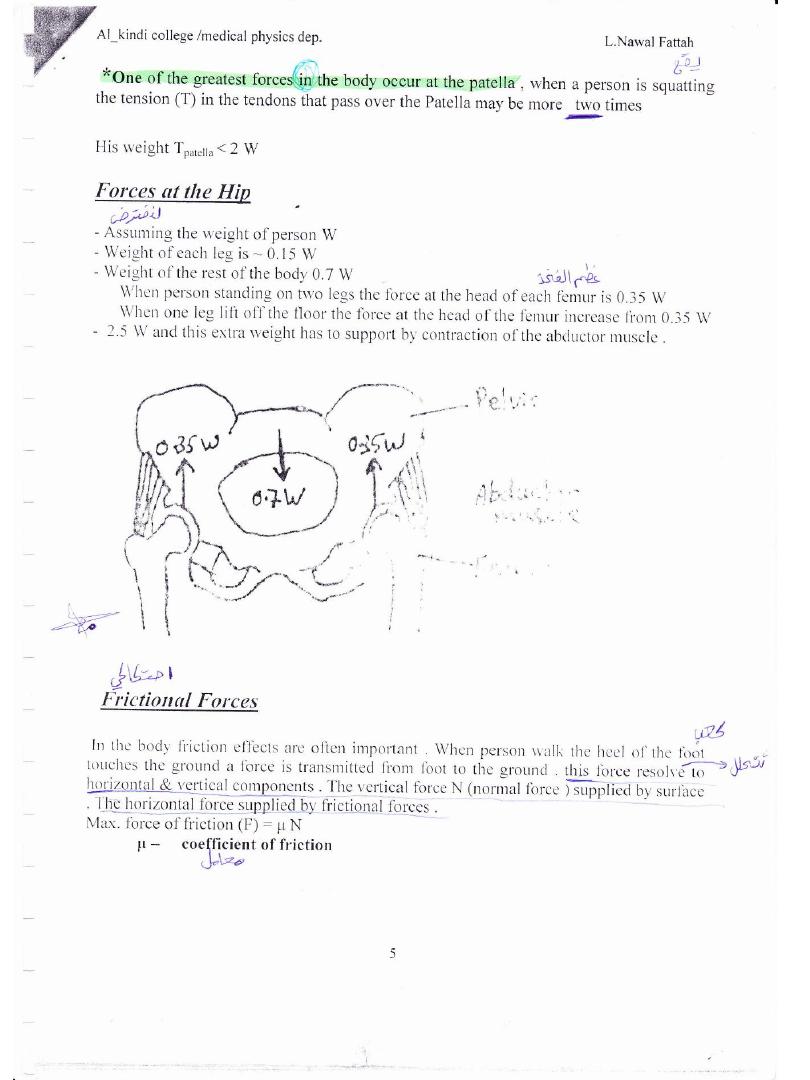 Al_kindi college /medical physics dep.
L.Nawal Fattah
يقع
*One of the greatest forces in the body occur at the patella , when a person is squatting
the tension (T) in the tendons that pass over the Patella may be more two times
His weight Tpatella < 2 W
Forces at the Hip
لنفترض
- Assuming the weight of person W
- Weight of each leg is ~ 0.15 W
- Weight of the rest of the body 0.7 W
عظم الفخذ
When person standing on two legs the force at the head of each femur is 0.35 W
When one leg lift off the floor the force at the head of the femur increase from 0.35 W
- 2.5 W and this extra weight has to support by contraction of the abductor muscle .
Pelvis
0.35W
0.35W
0.7W
احتكاكي
Frictional Forces
كعب
In the body friction effects are often important . When person walk the heel of the foot
touches the ground a force is transmitted from foot to the ground . this force resolve to
تتحلل
horizontal & vertical components . The vertical force N (normal force ) supplied by surface
. The horizontal force supplied by frictional forces .
Max. force of friction (F) = μ N
μ – coefficient of friction
معامل
5